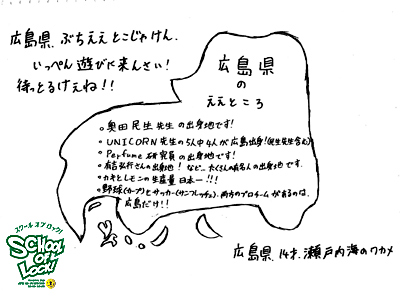 広島県、ぶちええとこじゃけん、
いっぺん遊びに来んさい!
待っとるけえね!!
広島県
の
ええところ
。奥田民生先生の出身地です!
。UNICORN先生の5人中4人が広島出身!(民生先生含む)
。Perfume研究員の出身地です!
。有吉弘行さんの出身地! など…たくさんの有名人の出身地です。
。カキとレモンの生産量日本一!!!
。野球(カープ)とサッカー(サンフレッチェ)、両方のプロチームがあるのは、
広島だけ!!
スクール オブ ロック!
SCHOOL
OF
LOCK!
広島県、14才、瀬戸内海のワカメ